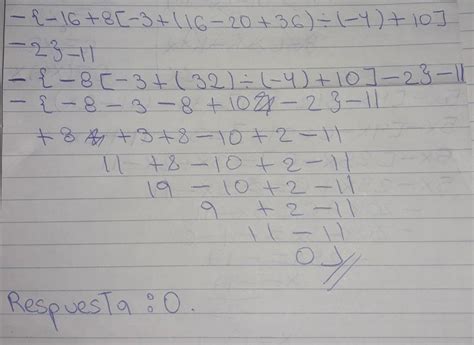 -{-16+8[-3+(16-20+36)÷(-4)+10]
-2}-11
-{-8[-3+(32)÷(-4)+10]-2}-11
-{-8-3-8+10-2}-11
+8+3+8-10+2-11
11+8-10+2-11
19-10+2-11
9+2-11
11-11
0
Respuesta:0.